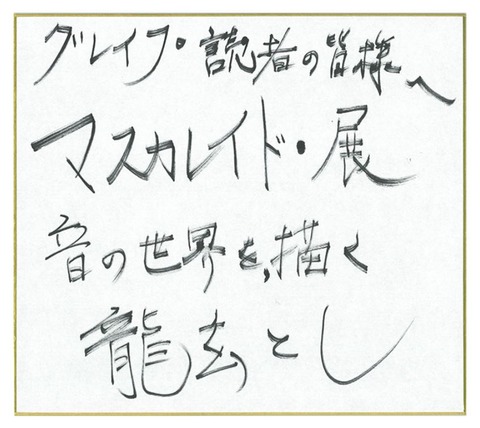 グレイプ・読者の皆様へ
マスカレイド・展
音の世界を、描く
龍玄とし